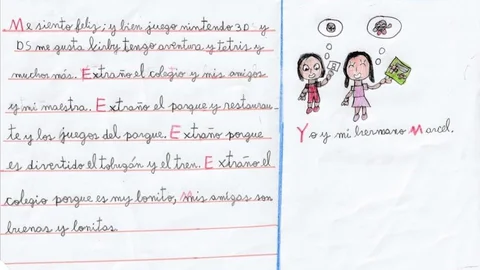 Me siento feliz; y bien juego nintendo 3D y
DS me gusta kirby tengo aventura y tetris y
muchos más. Extraño el colegio y mis amigos
y mi maestra. Extraño el parque y restauran-
te y los juegos del parque. Extraño porque
es divertido el tobugán y el tren. Extraño el
colegio porque es muy bonito, mis amigas son
buenas y bonitas
Yo y mi hermano Marcel.